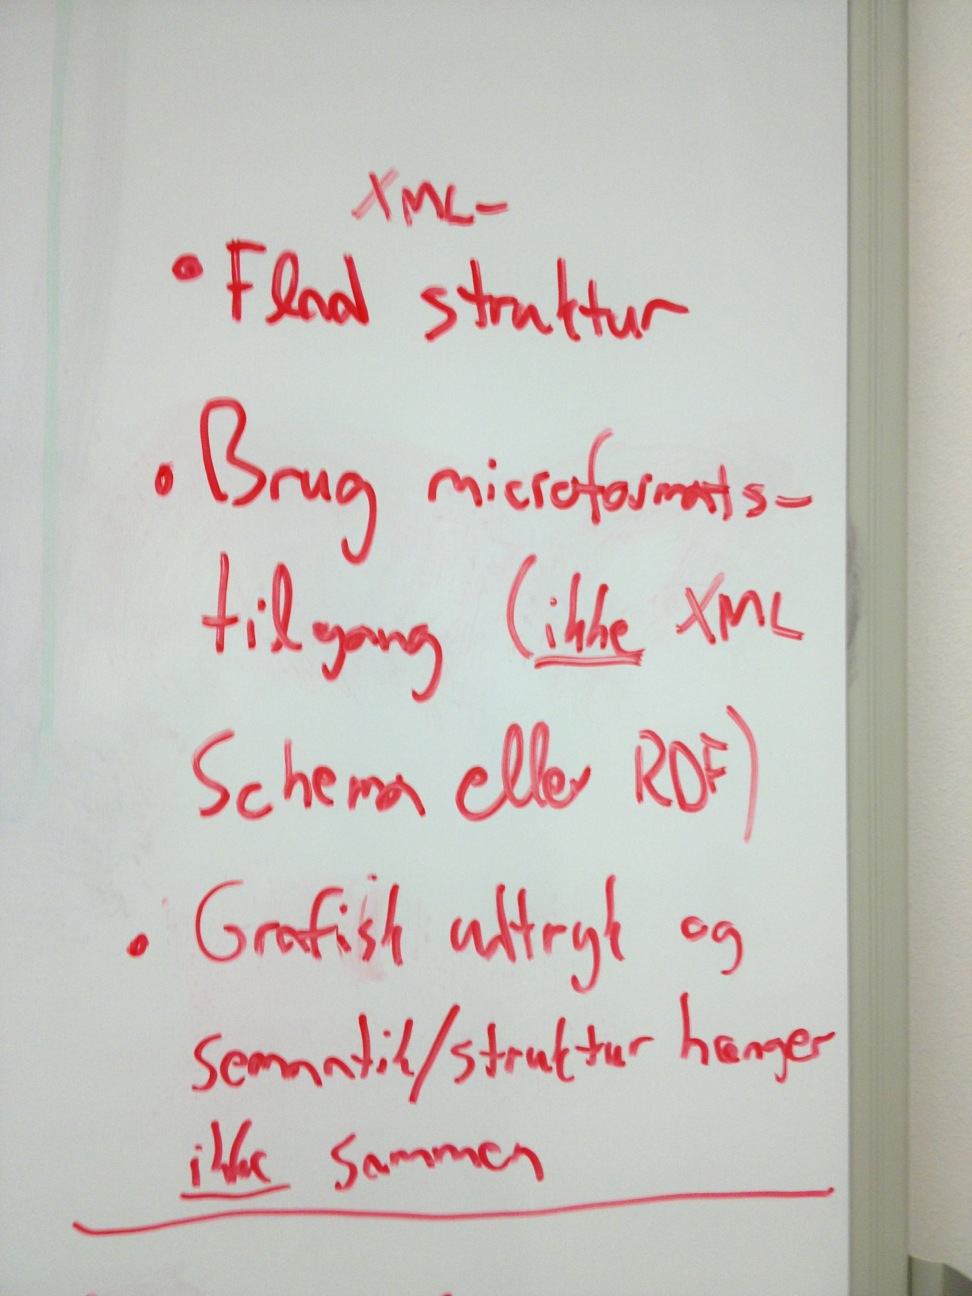 XML-
• Flad struktur
• Brug microformats-
tilgang (ikke XML
Schema eller RDF)
• Grafisk udtryk og
semantik/struktur hænger
ikke sammen